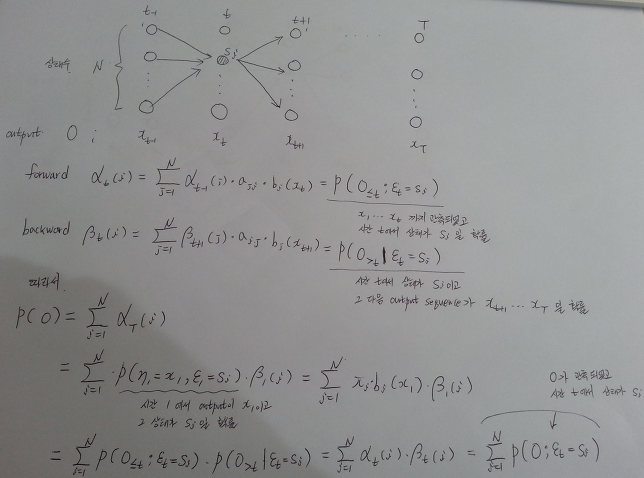 t-1 t t+1 T
Sj
상태수 N
output O ; x_{t-1} x_t x_{t+1} x_T
forward α_t(j) = Σ_{j=1}^{N} α_{t-1}(j)·a_{jj}·b_j(x_t) = P(O_{≤t} ; ξ_t = S_j)
x_1 ... x_t 까지 관측되었고
시간 t에서 상태가 S_j 일 확률
backward β_t(j) = Σ_{j=1}^{N} β_{t+1}(j)·a_{jj}·b_j(x_{t+1}) = P(O_{>t} | ξ_t = S_j)
시간 t에서 상태가 S_j 이고
그 다음 output sequence가 x_{t+1} ... x_T 일 확률
따라서,
P(O) = Σ_{j=1}^{N} α_T(j)
= Σ_{j=1}^{N} P(η_1 = x_1, ξ_1 = S_j)·β_1(j) = Σ_{j=1}^{N} π_j·b_j(x_1)·β_1(j)
시간 1에서 output이 x_1이고
그 상태가 S_j 일 확률
O가 관측되었고
시간 t에서 상태가 S_j
= Σ_{j=1}^{N} P(O_{≤t} ; ξ_t = S_j)·P(O_{>t} | ξ_t = S_j) = Σ_{j=1}^{N} α_t(j)·β_t(j) = Σ_{j=1}^{N} P(O ; ξ_t = S_j)